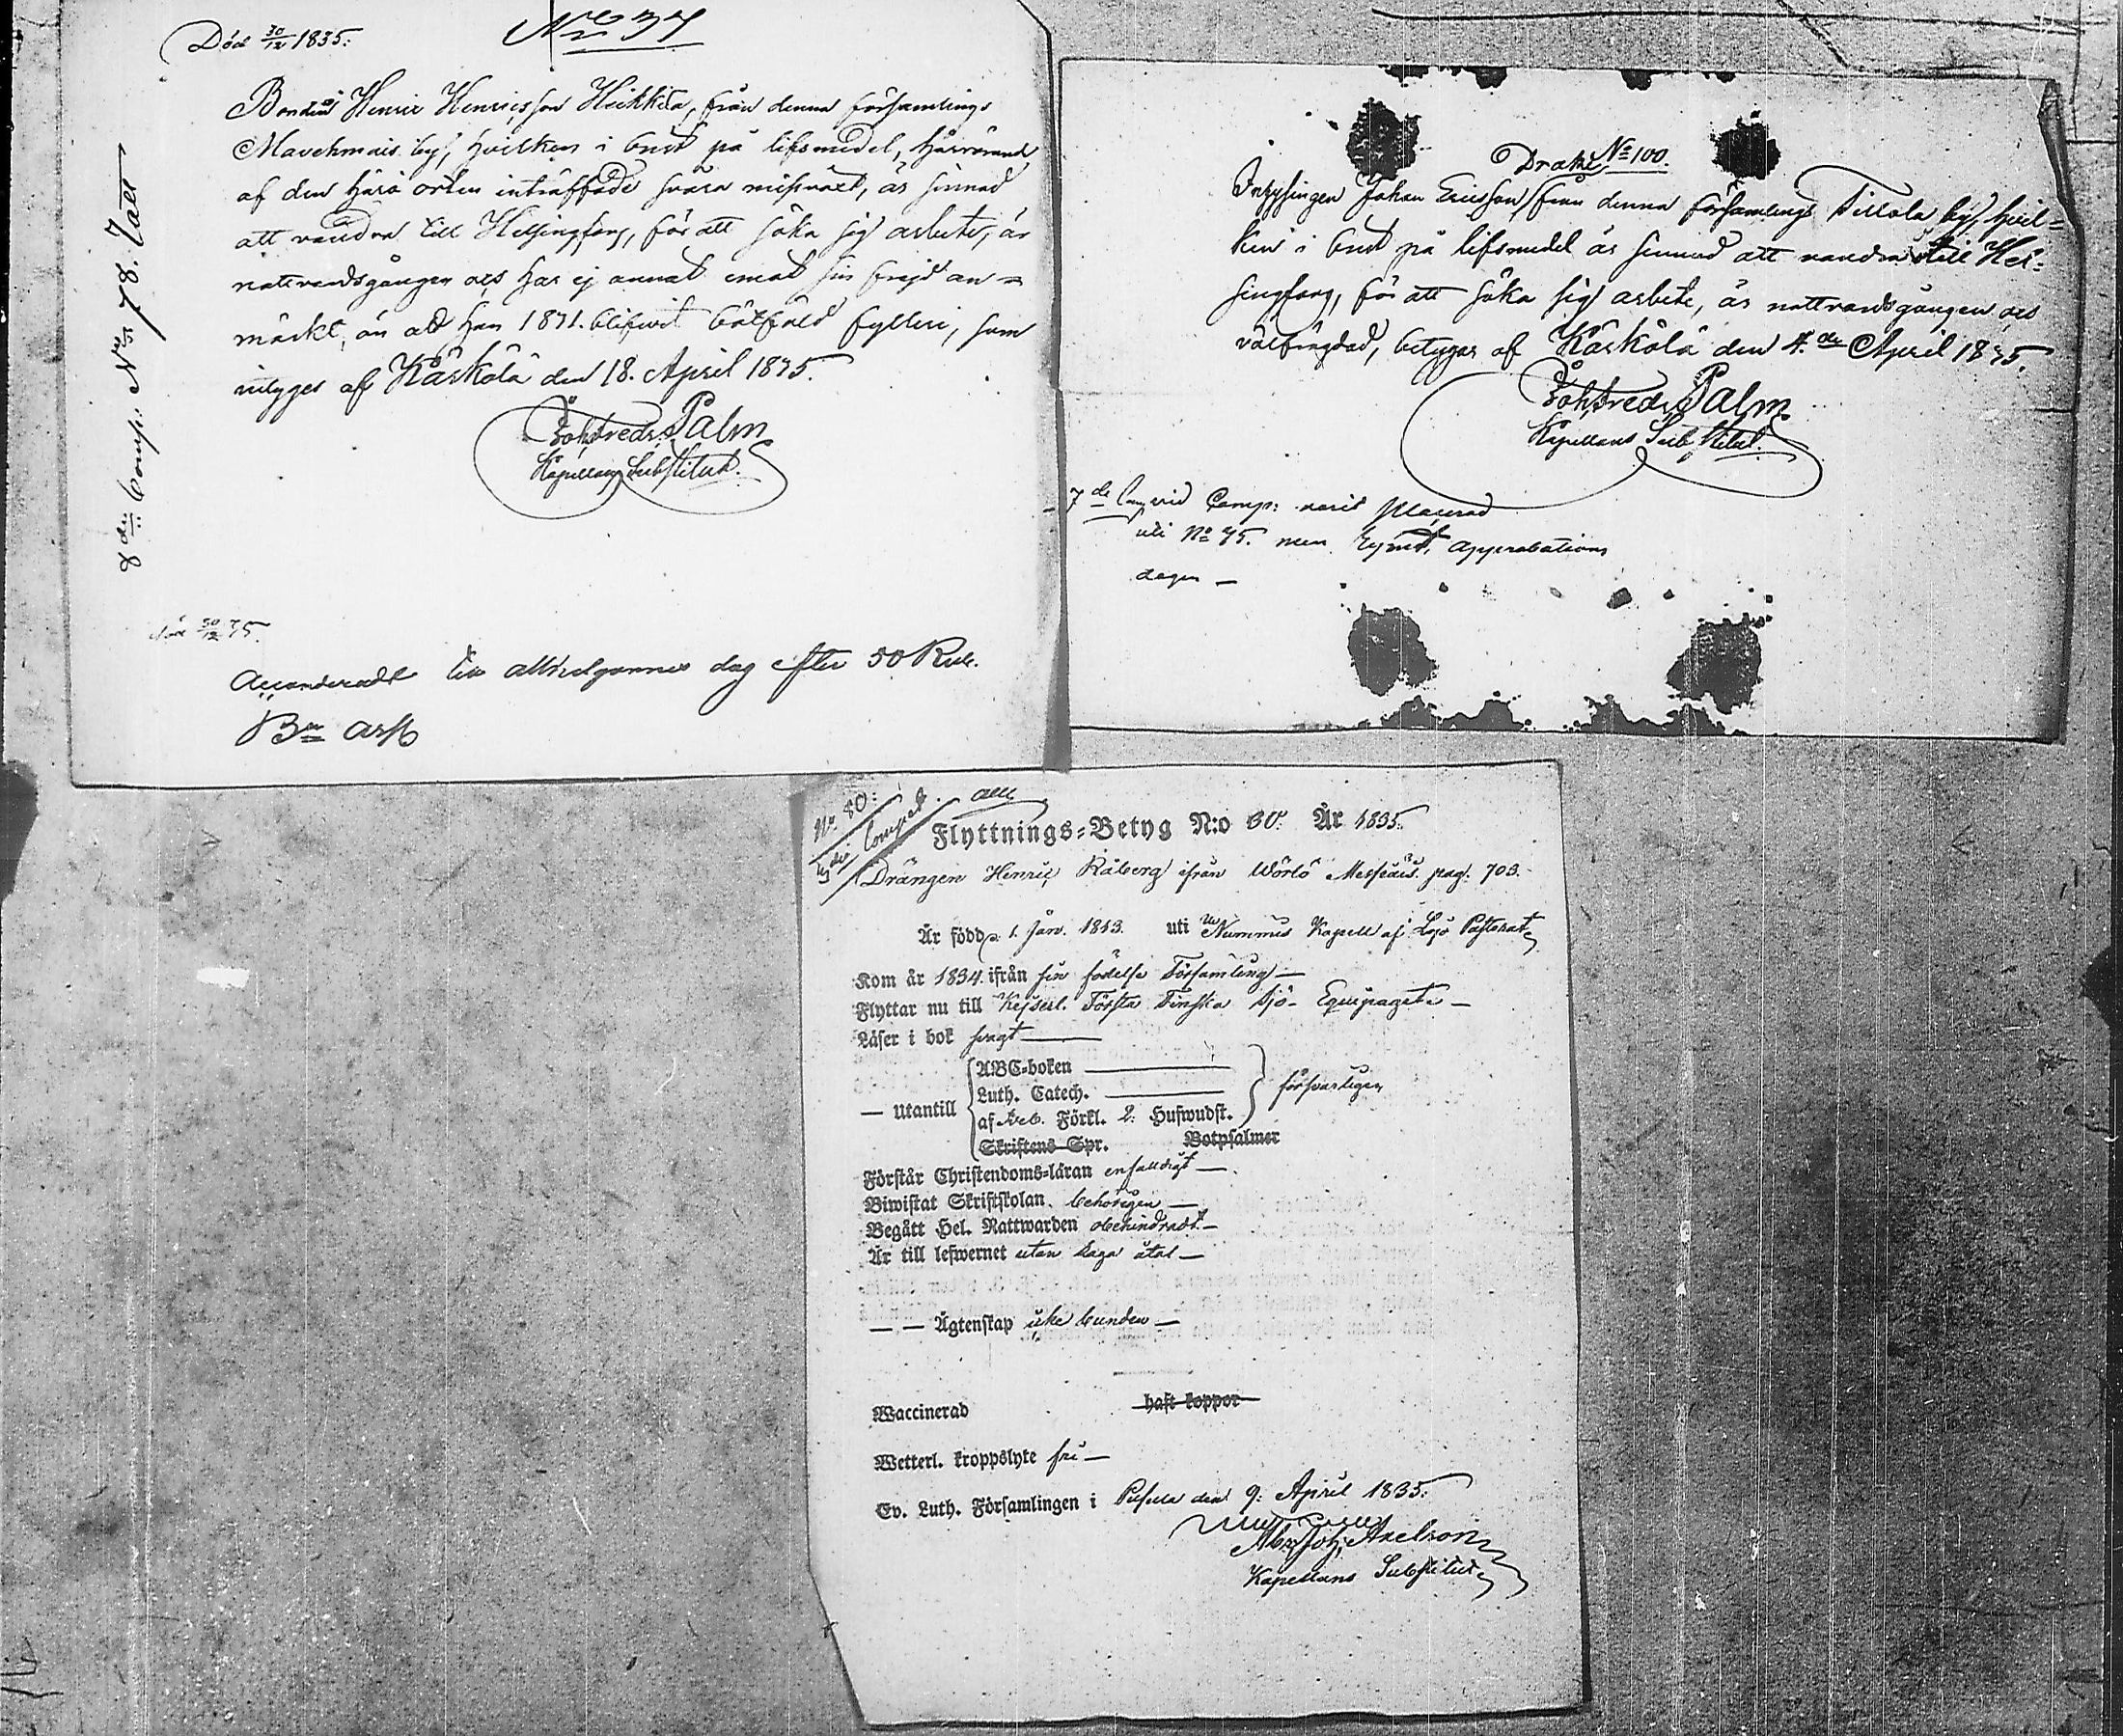 Död 30/12 1835:
No 37
Bonden Henric Henricsson Heikkilä, från denna församlings
by, hvilken i brist på lifsmedel, härrörande
af den härå orten inträffade svåra missväxt, är sinnad
att vandra till Helsingfors, för att söka sig arbete, är
nattvardsgången och har ej annat emot sin frejd an=
märkt, än att han 1831. blifwit bötfäld fylleri, som
intygas af Kärkölä den 18. April 1835.
Joh Fredr. Palm
Kapellans Substitut.
8de Comp: No 78.
död 30/12 35.
till allhelgonnes dag efter 50 Rub.
No 100.
Drake
Inhysingen Johan Ericsson från denna församlings Tillola by, hvil=
ken i brist på lifsmedel är sinnad att vandra till Hel=
singfors, för att söka sig arbete, är nattvardsgången och
välfrägdad, betygar af Kärkölä den 4.de April 1835.
Joh Fredr. Palm
Kapellans Substitut.
7de Comp:
uti No 75. men approbations
dagen —
No 80:
Flyttnings=Betyg N:o 30. År 1835.
Drängen Henric Råberg ifrån Wörlö pag. 703.
Är född d. 1. Jan. 1813. uti Nummis Kapell af Lojo Pastorat
Kom år 1834. ifrån sin födelse Församling —
Flyttar nu till Kejserl. Första Finska Sjö- Equipaget —
Läser i bok svagt —
— Utantill
ABC=boken —
Luth. Catech. —
af Förkl. 2. Hufwudst.
försvarligen
Skriftens Spr. Botpsalmer
Förstår Christendoms=läran enfaldigt —
Biwistat Skriftskolan behörigen —
Begått Hel. Nattwarden obehindradt —
Är till lefwernet utan laga åtal —
— — Ägtenskap icke bunden —
Waccinerad haft koppor
Wetterl. kroppslyte fri —
Ev. Luth. Församlingen i Pusula den 9. April 1835.
Axelson
Kapellans Substitut